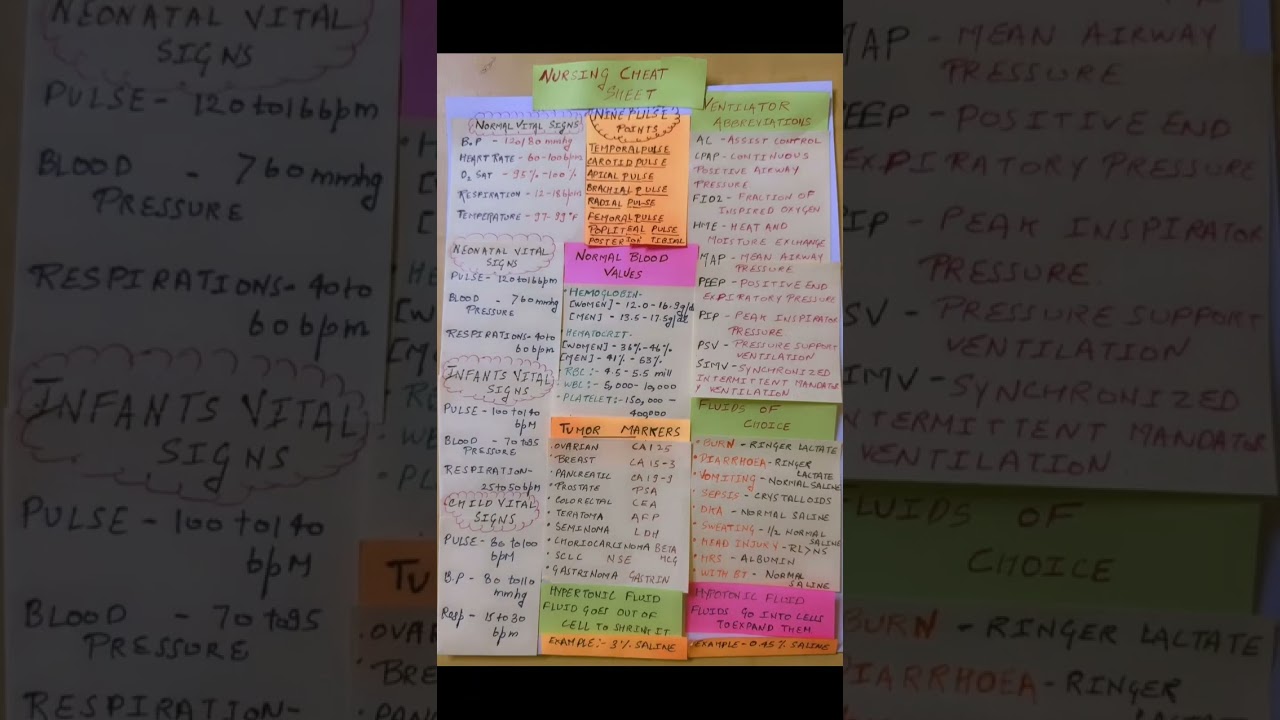 NURSING CHEAT
SHEET
NORMAL VITAL SIGNS
B.P - 120/80 mmHg
HEART RATE - 60-100bpm
O2 SAT - 95%-100%
RESPIRATION - 12-18bpm
TEMPERATURE - 97-99°F
NEONATAL VITAL
SIGNS
PULSE - 120to166bpm
BLOOD - 760mmhg
PRESSURE
RESPIRATIONS - 40to
60bpm
INFANTS VITAL
SIGNS
PULSE - 100to140
bpM
BLOOD - 70to95
PRESSURE
RESPIRATION-
25to50bpm
CHILD VITAL
SIGNS
PULSE - 80to100
bpM
B.P - 80 to110
mmhg
Resp - 15to30
bpm
NINE PULSE
POINTS
TEMPORALPULSE
CAROTID PULSE
APICAL PULSE
BRACHIAL PULSE
RADIAL PULSE
FEMORALPULSE
POPLITEAL PULSE
POSTERIOR TIBIAL
NORMAL BLOOD
VALUES
• HEMOGLOBIN-
[WOMEN] - 12.0-16.9g/dl
[MEN] - 13.5-17.5g/dl
• HEMATOCRIT-
[WOMEN] - 36%-46%
[MEN] - 41% - 53%
• RBC :- 4.5-5.5 mill
• WBC :- 5,000-10,000
• PLATELET:-150,000-
400,000
TUMOR MARKERS
• OVARIAN CA125
• BREAST CA 15-3
• PANCREATIC CA19-9
• PROSTATE PSA
• COLORECTAL CEA
• TERATOMA AFP
• SEMINOMA LDH
• CHORIOCARCINOMA BETA
HCG
• SCLC NSE
• GASTRINOMA GASTRIN
HYPERTONIC FLUID
FLUID GOES OUT OF
CELL TO SHRINK IT
EXAMPLE:- 3% SALINE
VENTILATOR
ABBREVIATIONS
AC - ASSIST CONTROL
CPAP - CONTINUOUS
POSITIVE AIRWAY
PRESSURE
FIO2 - FRACTION OF
INSPIRED OXYGEN
HME - HEAT AND
MOISTURE EXCHANGE
MAP - MEAN AIRWAY
PRESSURE
PEEP - POSITIVE END
EXPIRATORY PRESSURE
PIP - PEAK INSPIRATOR
PRESSURE
PSV - PRESSURE SUPPORT
VENTILATION
SIMV - SYNCHRONIZED
INTERMITTENT MANDATOR
Y VENTILATION
FLUIDS OF
CHOICE
• BURN - RINGER LACTATE
• DIARRHOEA - RINGER
LACTATE
• VOMITING - NORMAL SALINE
• SEPSIS - CRYSTALLOIDS
• DKA - NORMAL SALINE
• SWEATING - 1/2 NORMAL
SALINE
• HEAD INJURY - RL>NS
• HRS - ALBUMIN
• WITH BT - NORMAL
SALINE
HYPOTONIC FLUID
FLUIDS GO INTO CELLS
TO EXPAND THEM
EXAMPLE - 0.45% SALINE